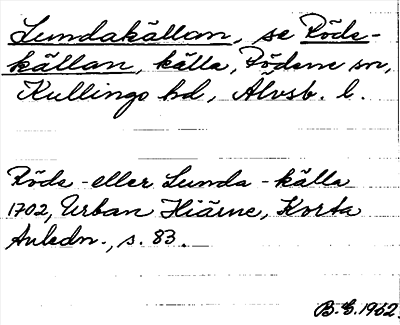 Lundakällan, se Röde-
källan, källa, Södene sn,
Kullings hd, Älvsb. l.
Röde- eller Lunda-källa
1702, Urban Hiärne, Korta
Anledn., s. 83.
B.E. 1962.